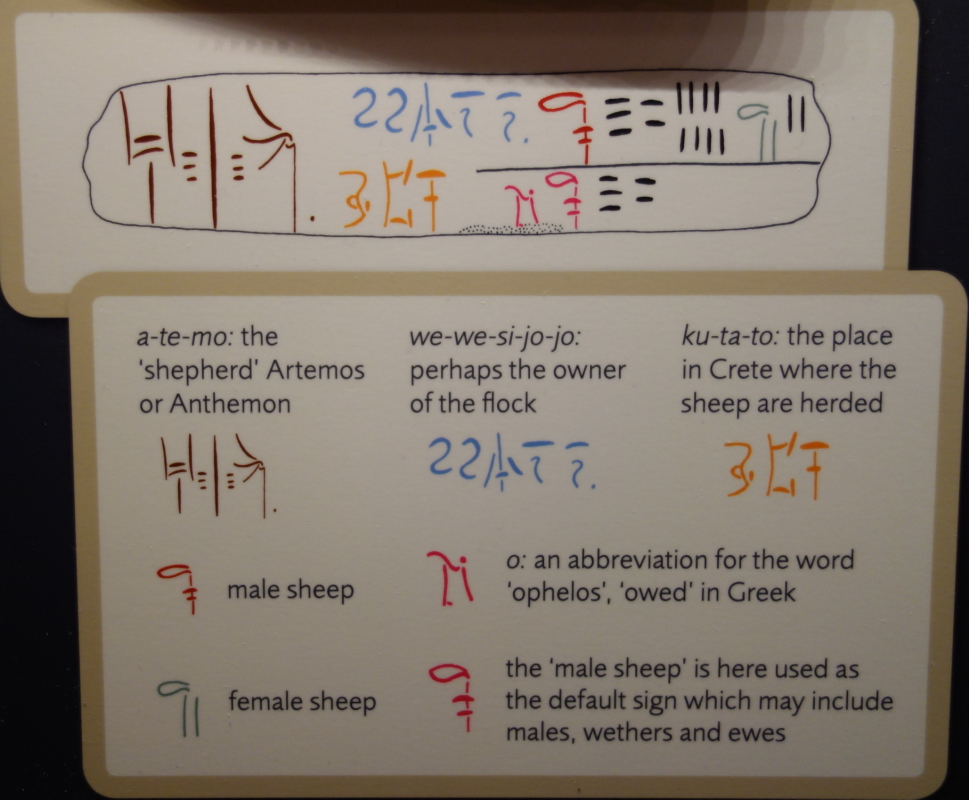 𐀀𐀳𐀗 𐀸𐀸𐀯𐀍𐀍 𐂇 𐄔𐄎 𐂆 𐄈
𐀓𐀲𐀵 𐀃 𐂇 𐄔
a-te-mo: the
'shepherd' Artemos
or Anthemon
𐀀𐀳𐀗
we-we-si-jo-jo:
perhaps the owner
of the flock
𐀸𐀸𐀯𐀍𐀍
ku-ta-to: the place
in Crete where the
sheep are herded
𐀓𐀲𐀵
𐂇 male sheep
𐀃 o: an abbreviation for the word
'ophelos', 'owed' in Greek
𐂆 female sheep
𐂇 the 'male sheep' is here used as
the default sign which may include
males, wethers and ewes